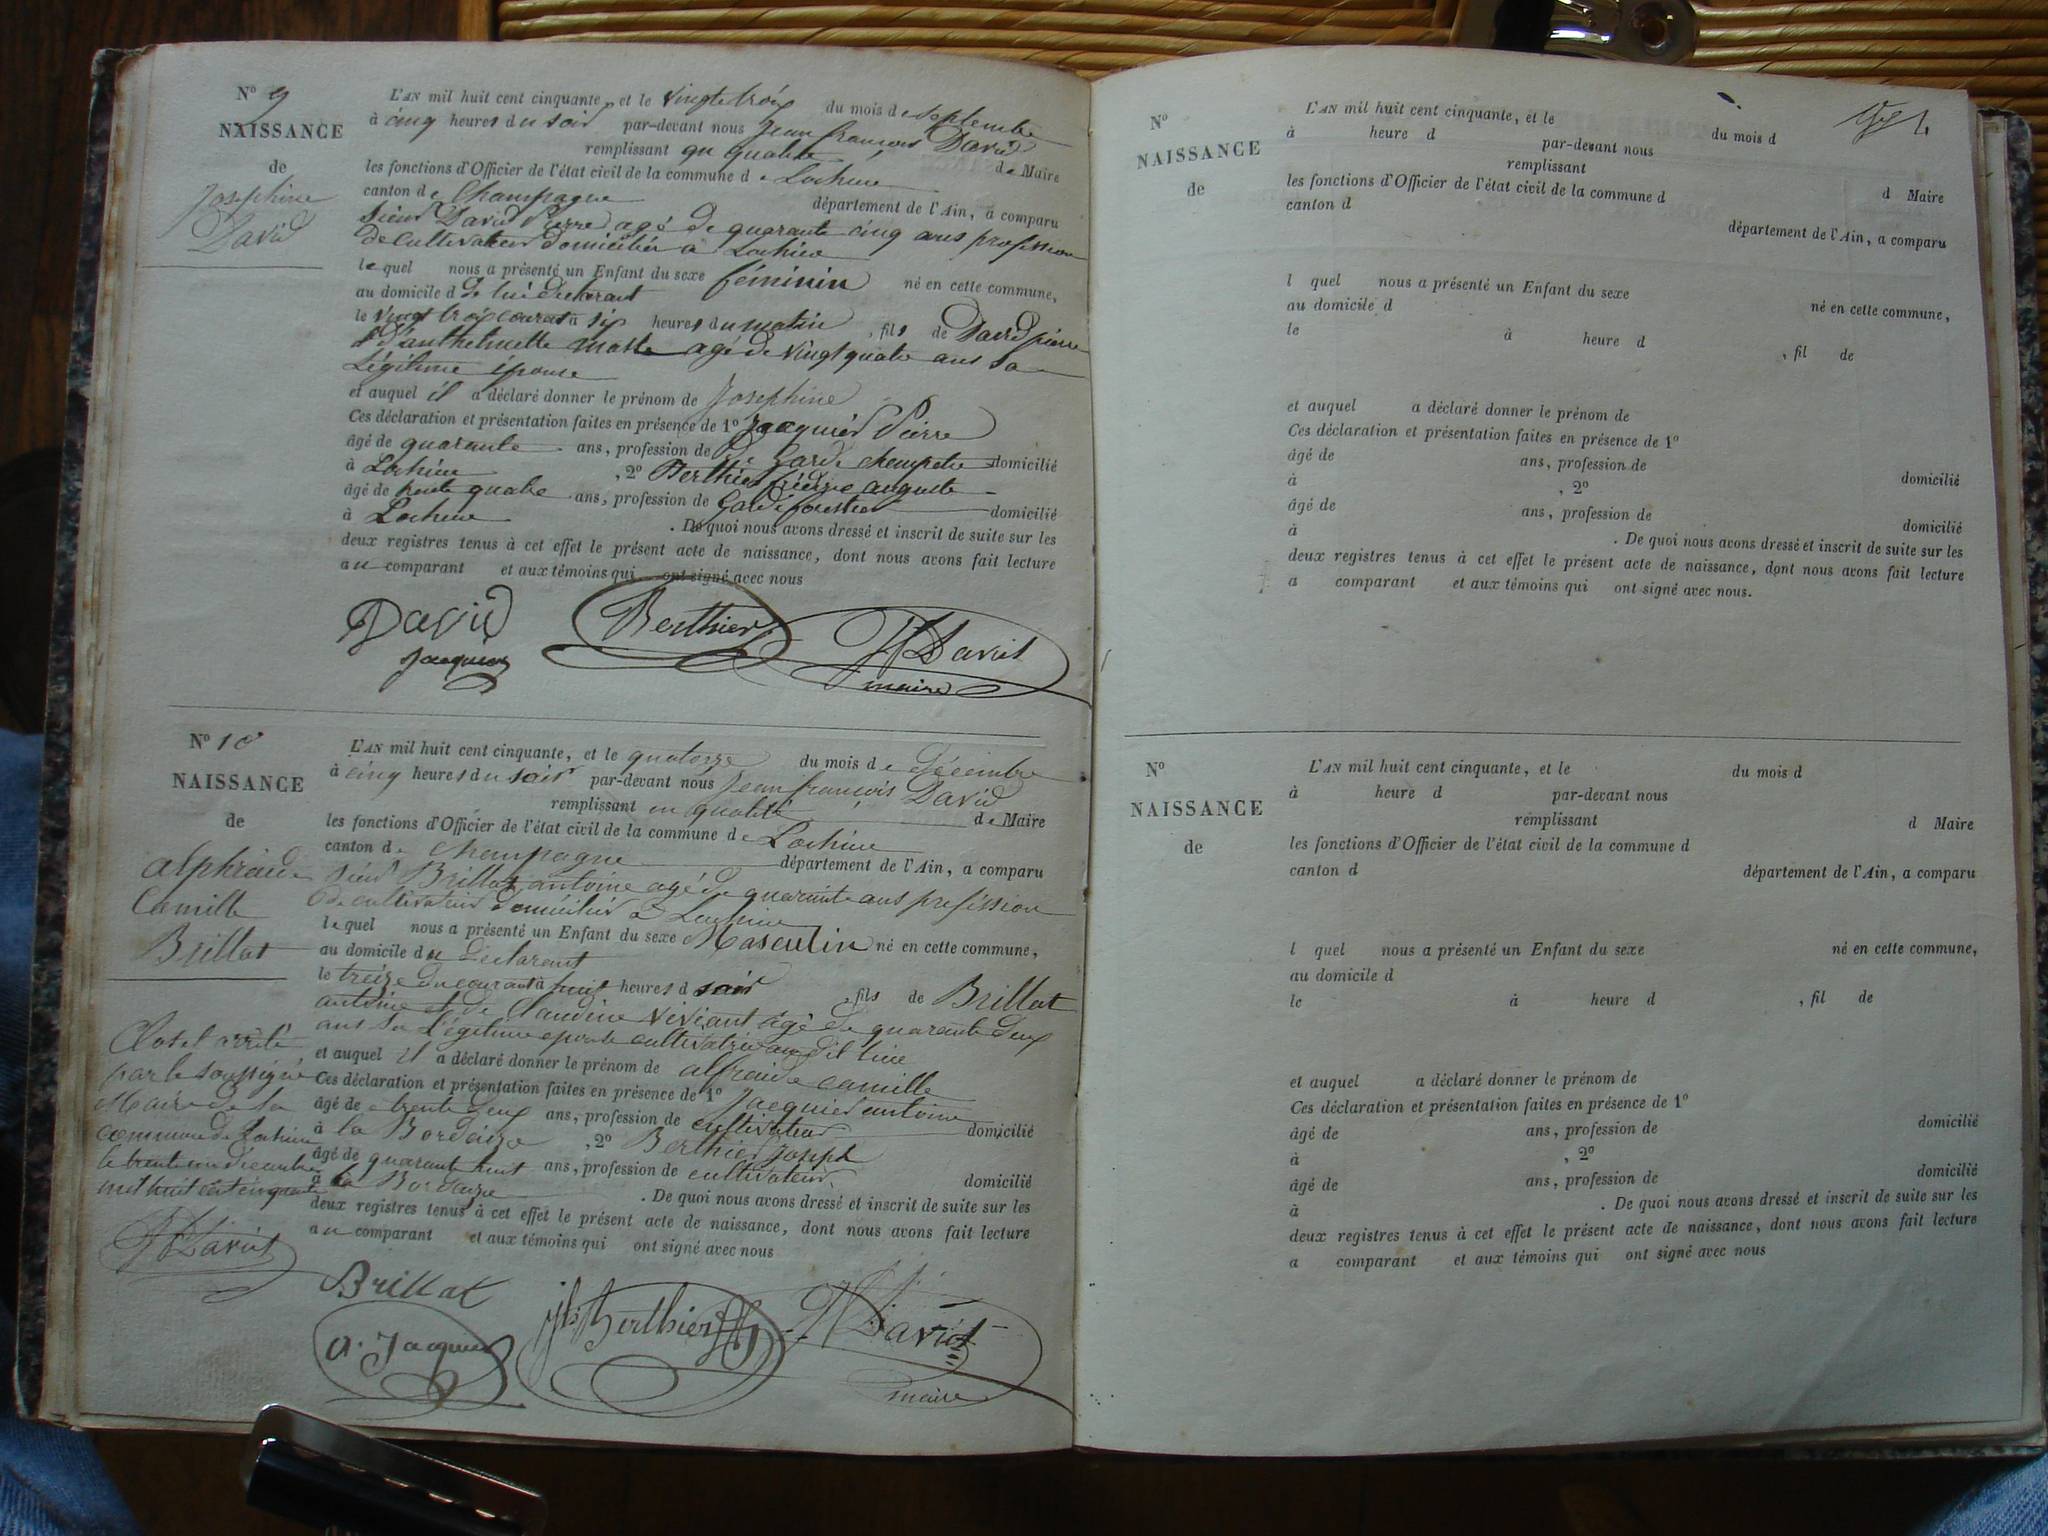 N° 9
NAISSANCE
de
Josephine
David
L'AN mil huit cent cinquante, et le vingt trois du mois de septembre
à cinq heures du soir par-devant nous Jean françois David
remplissant en qualité de Maire
les fonctions d'Officier de l'état civil de la commune de Lochieu
canton de Champagne département de l'Ain, a comparu
Sieur David Pierre agé de quarante cinq ans profession
de cultivateur domicilié à Lochieu
lequel nous a présenté un Enfant du sexe féminin né en cette commune,
au domicile d de lui déclarant
le vingt trois courant à six heures du matin, fils de David pierre
d'anthelmette agé de vingt quatre ans sa
Légitime épouse
et auquel il a déclaré donner le prénom de Josephine
Ces déclaration et présentation faites en présence de 1° Jacquier Pierre
âgé de quarante ans, profession de garde champetre domicilié
à Lochieu, 2° Berthier auguste
âgé de trente quatre ans, profession de Garde forestier domicilié
à Lochieu. De quoi nous avons dressé et inscrit de suite sur les
deux registres tenus à cet effet le présent acte de naissance, dont nous avons fait lecture
au comparant et aux témoins qui ont signé avec nous
David Berthier JF David
Jacquier maire
N° 10
NAISSANCE
de
alphraide
Camille
Brillat
L'AN mil huit cent cinquante, et le quatorze du mois de décembre
à cinq heures du soir par-devant nous Jean françois David
remplissant en qualité de Maire
les fonctions d'Officier de l'état civil de la commune de Lochieu
canton de champagne département de l'Ain, a comparu
sieur Brillat antoine agé de quarante ans profession
de cultivateur domicilié à Lochieu
lequel nous a présenté un Enfant du sexe Masculin né en cette commune,
au domicile du declarant
le treize du courant à huit heures d soir, fils de Brillat
antoine et de Claudine viviant âgé de quarante deux
ans sa Légitime epouse cultivatrice au dit lieu
et auquel il a déclaré donner le prénom de alfraide camille
Ces déclaration et présentation faites en présence de 1° jacquier antoine
âgé de trente deux ans, profession de cultivateur domicilié
à la Bordeize, 2° Berthier joseph
âgé de quarant huit ans, profession de cultivateur domicilié
à la Bordeize. De quoi nous avons dressé et inscrit de suite sur les
deux registres tenus à cet effet le présent acte de naissance, dont nous avons fait lecture
au comparant et aux témoins qui ont signé avec nous
Clos et arrêté
par le soussigné
Maire de la
commune de Lochieu
le trente un décembre
mil huit cent cinquante
JF David
Brillat
a. Jacquier Berthier JF David
maire
N°
NAISSANCE
de
L'AN mil huit cent cinquante, et le du mois d
à heure d par-devant nous
remplissant d Maire
les fonctions d'Officier de l'état civil de la commune d
canton d département de l'Ain, a comparu
l quel nous a présenté un Enfant du sexe né en cette commune,
au domicile d
le à heure d , fil de
et auquel a déclaré donner le prénom de
Ces déclaration et présentation faites en présence de 1°
âgé de ans, profession de domicilié
à , 2°
âgé de ans, profession de domicilié
à . De quoi nous avons dressé et inscrit de suite sur les
deux registres tenus à cet effet le présent acte de naissance, dont nous avons fait lecture
a comparant et aux témoins qui ont signé avec nous.
N°
NAISSANCE
de
L'AN mil huit cent cinquante, et le du mois d
à heure d par-devant nous
remplissant d Maire
les fonctions d'Officier de l'état civil de la commune d
canton d département de l'Ain, a comparu
l quel nous a présenté un Enfant du sexe né en cette commune,
au domicile d
le à heure d , fil de
et auquel a déclaré donner le prénom de
Ces déclaration et présentation faites en présence de 1°
âgé de ans, profession de domicilié
à , 2°
âgé de ans, profession de domicilié
à . De quoi nous avons dressé et inscrit de suite sur les
deux registres tenus à cet effet le présent acte de naissance, dont nous avons fait lecture
a comparant et aux témoins qui ont signé avec nous